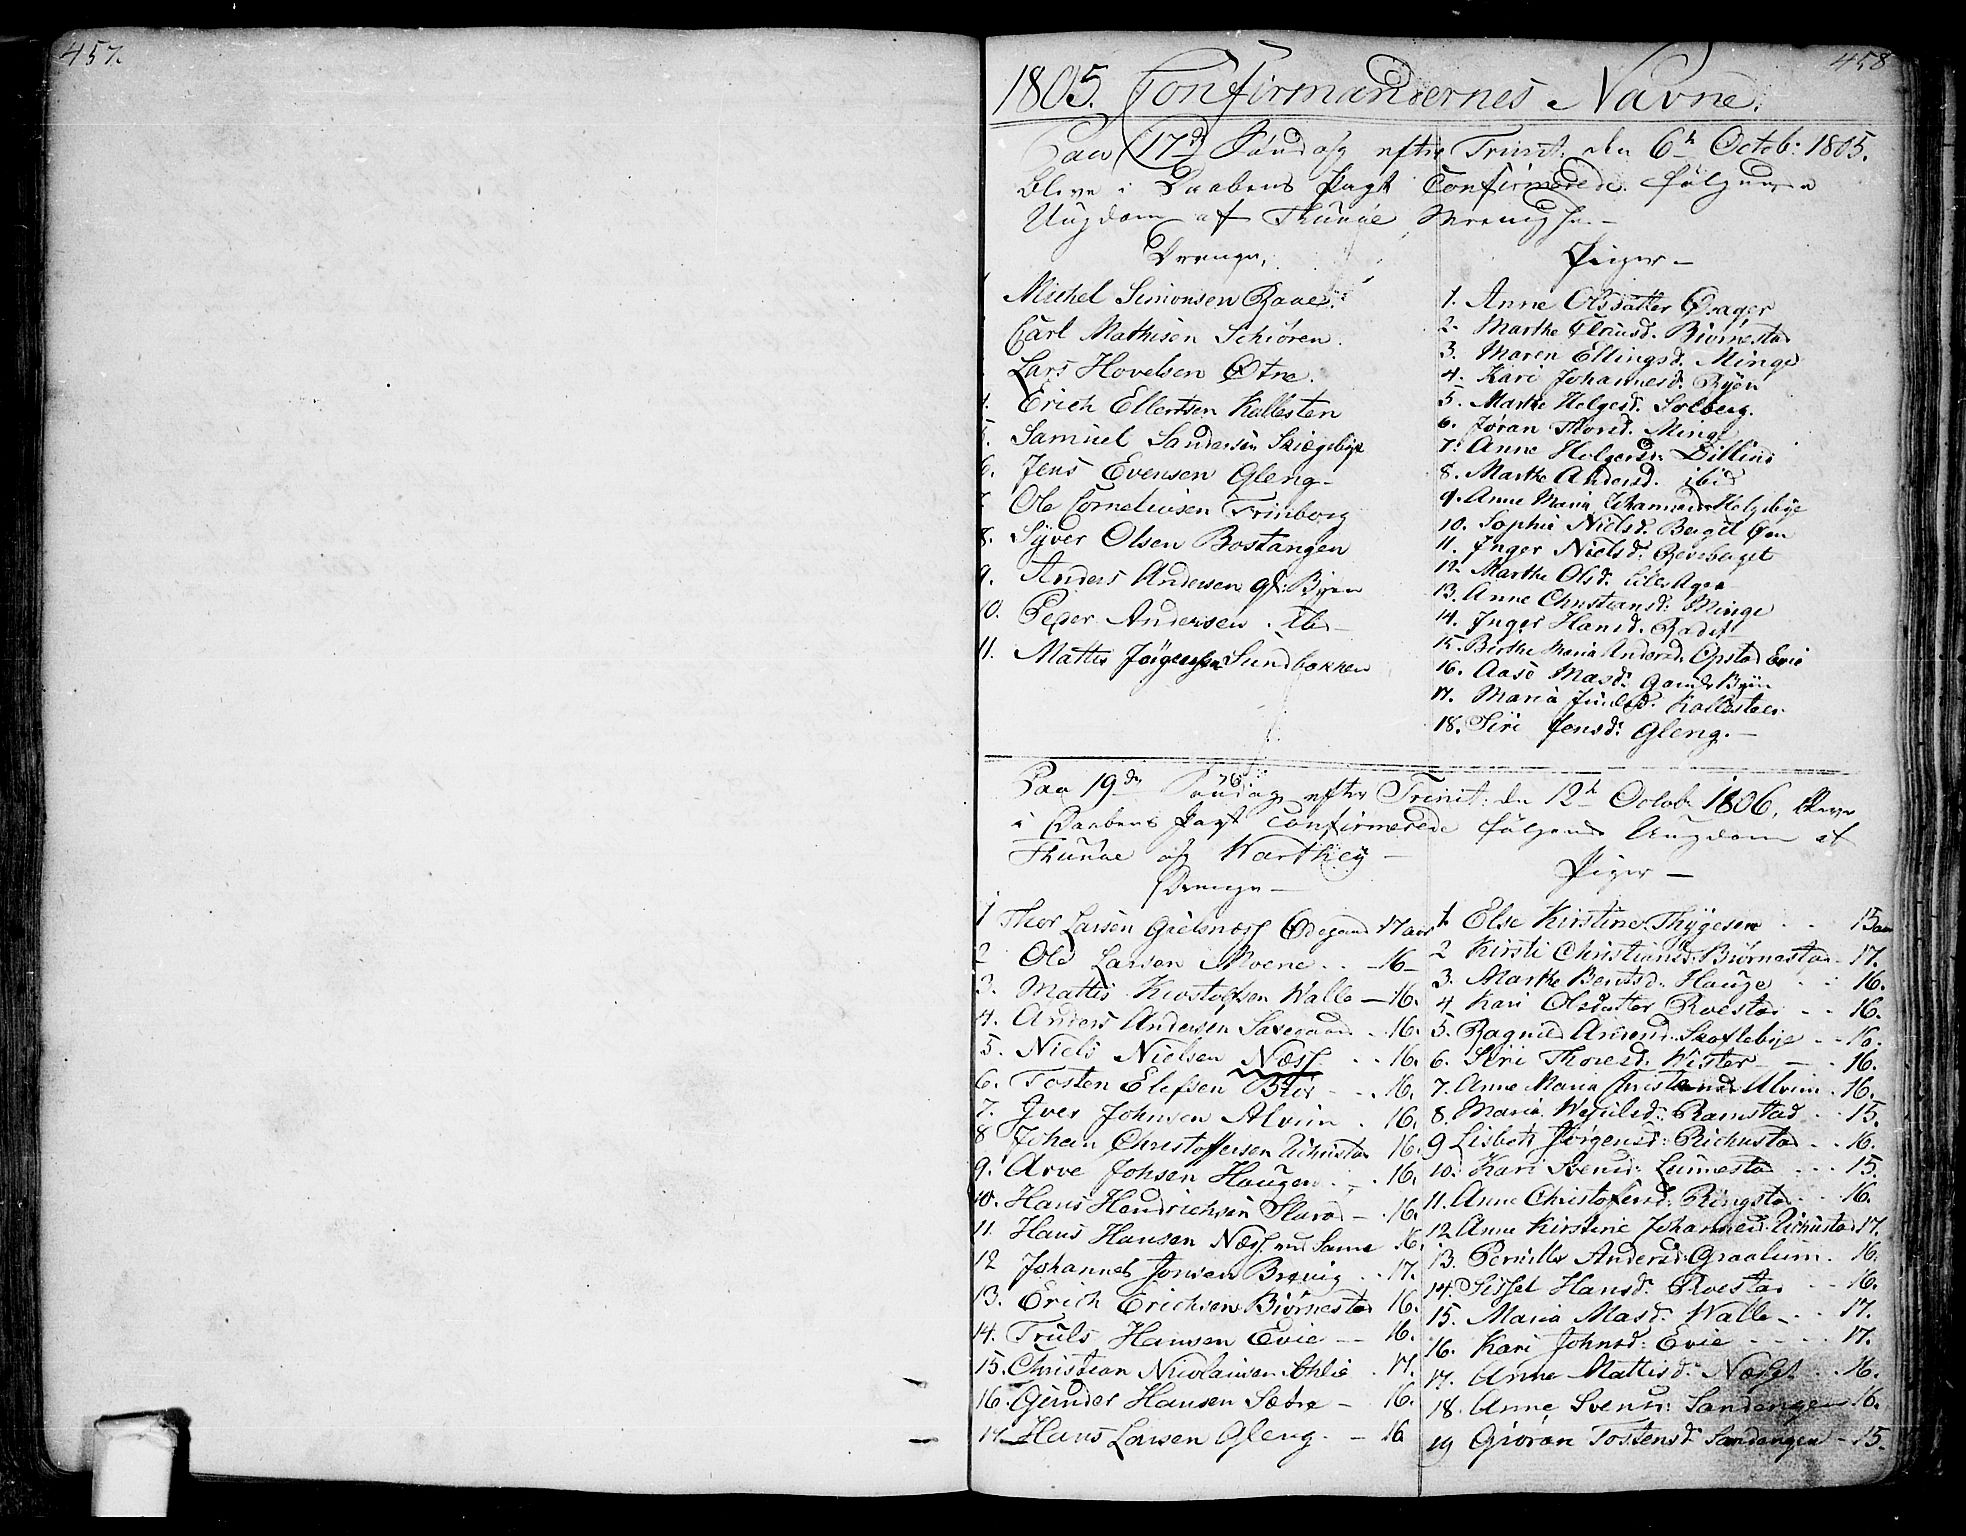 457.
458
1805. Confirmandernes Navne.
Paa 17d Søndag efter Trinit: den 6te Octob: 1805.
bleve i Daabens Pagt Confirmerede følgende
Ungdom af Thunøe Menigh.
Drenge,
Michel Simonsen
Carl Mathisen Schiören.
Lars Hovelsen Øtre.
4. Erich Ellertsen Kallesten
5. Samuel Sandersen Skiægebye
6. Jens Evensen Gleng-
7. Ole Corneliusen Trinborg
8. Syver Olsen Bostangen
9. Anders Andersen gl: Byen
10. Peder Andersen. Ibd-
11. Mattis Jørgensen Sundbakken
Piger-
1. Anne Olsdatter
2. Marthe Biörnestad
3. Maren Ellingsd. Minge
4. Kari Johannesd. Byen
5. Marthe Helgesd. Solberg.
6. Jøran Thorsd. Minge
7. Anne Holgersd:
8. Marthe Andersd. ibid
9. Anne Maria Johannesd. Helgebye
10. Sophie Nielsd. Berget Øen
11. Inger Nielsd: Revebuget
12. Marthe Olsd. Lille Agen
13. Anne Christiansd: Minge
14. Inger Hansd.
15. Birthe Maria Andersd. Opstad Evie
16. Aase Masd: Byen
17. Maria Kallesteen
18. Siri Jensd: Gleng.-
Paa 19de Søndag efter Trinit: den 12te Octob: 1806, bleve
i Daabens Pagt confirmerede følgende Ungdom af
Thunøe og Warthey-
Drenge-
1 Thor Larsen Gielsnæss Ødegaard 17 aar
2 Ole Larsen Moene. . -16-
3. Mattis Kirstofersen Walle-16.
4. Anders Andersen Saxegaard. 16.
5. Niels Nielsen Næss. . . 16.
6. Tosten Elefsen - . . 16.
7. Iver Johnsen Alvim . 16.
8 Johan Christoffersen Richustad 16.
9. Arve Johsen Haugen . . . 16.
10. Hans Hendrichsen -. 16.
11. Hans Hansen Næss ved Sanne 16.
12 Johannes Jonsen Brevig . . 17.
13. Erich Erichsen Biörnestad 16.
14. Truls Hansen Evie -- 16.
15. Christian Nicolaisen . 17.
16. Gunder Hansen Sætre - 16.
17 Hans Larsen Gleng. - 16
Piger-
1. Else Kirstine Thygesen . . . 15 aar
2 Kirsti Christiansd. Biörnestad - 17.
3. Marthe Bentsd: Hauge . . 16.
4 Kari Olsdatter Roestad . . . 16.
5. Ragnild Skoflebye . . 16.
6. Siri Thoresd. Wister - . 16.
7. Anne Maria Christiansd. Alvim . 16.
8. Maria Ramstad . . 15.
9 Lisbeth Jørgensd: Richustad . . 16.
10. Kari Svensd: Lunnestad . . . 15.
11. Anne Christofersd: Ringstad . . 16.
12 Anne Kirstine Johannesd. Richustad 17.
13. Pernille Andersd: Graalum. . 16.
14. Sissel Hansd: Roestad . . 16.
15. Maria Masd: Walle . . 17.
16. Kari Johnsd: Evie . . . . 17.
17. Anne Mattisd: . . 16.
18. Anne Svensd: Sandengen 16.
19 Giøran Tostensd. Sandengen - 15.